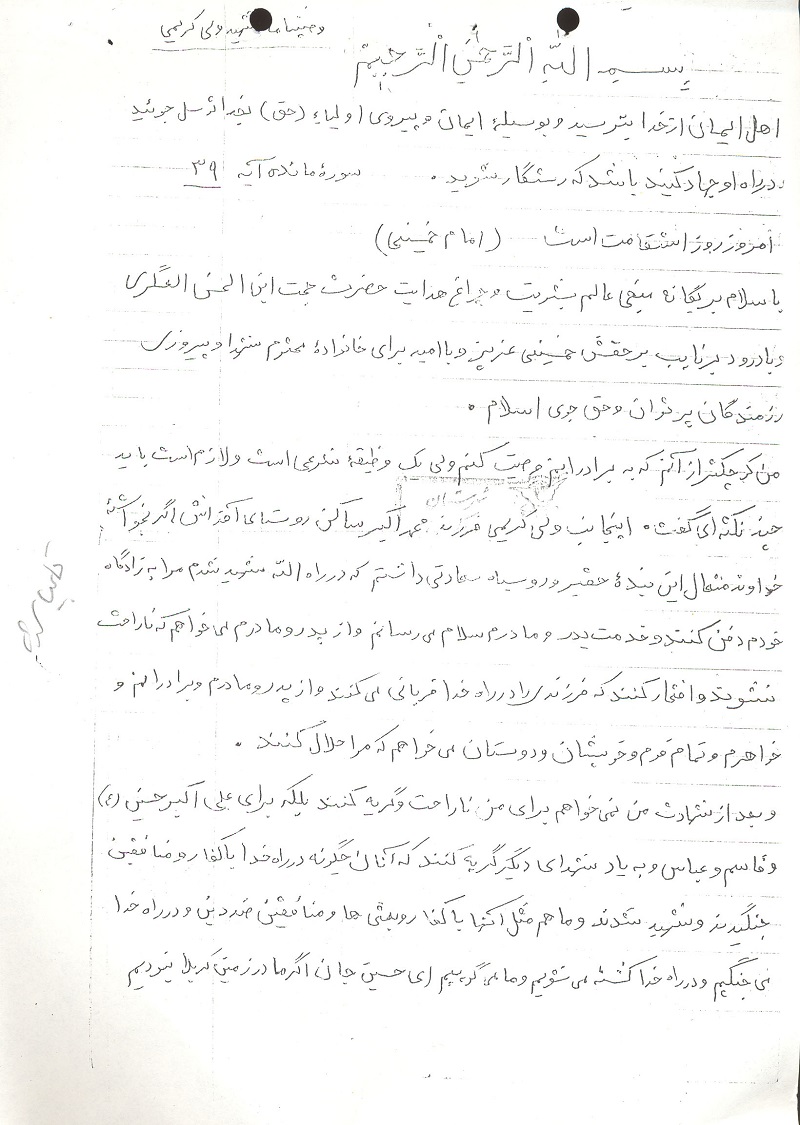 وصیتنامه شهید ولی کریمی
بسم الله الرّحمن الرّحیم
اهل ایمان از خدا بترسید و بوسیلهٔ ایمان و پیروی اولیاء (حق) بخدا توسل جوئید
و در راه او جهاد کنید باشد که رستگار شوید. سورهٔ مائده آیه ۳۹
امروز روز استقامت است (امام خمینی)
با سلام بر یگانه منجی عالم بشریت و چراغ هدایت حضرت حجت ابن الحسن العسگری
و با درود بر نایب بر حقش خمینی عزیز و با امید برای خانوادهٔ محترم شهدا و پیروزی
رزمندگان پر توان و حق جوی اسلام.
من کوچکتر از آنم که به برادرانم وصیت کنم ولی یک وظیفهٔ شرعی است و لازم است باید
چند نکته‌ای گفت. اینجانب ولی کریمی فرزند محمد اکبر ساکن روستای
خداوند متعال این بندهٔ حقیر و رو سیاه سعادتی داشتم که در راه الله شهید شدم مرا به زادگاه
خودم دفن کنند و خدمت پدر و مادرم سلام می رسانم و از پدر و مادرم می خواهم که ناراحت
نشوند و افتخار کنند که فرزندی را در راه خدا قربانی می کنند و از پدر و مادرم و برادرانم و
خواهرم و تمام قوم و خویشان و دوستان می خواهم که مرا حلال کنند.
و بعد از شهادت من نمی خواهم برای من ناراحت و گریه کنند بلکه برای علی اکبر حسین (ع)
و قاسم و عباس و به یاد شهدای دیگر گریه کنند که آنان چگونه در راه خدا با کفار و منافقین
جنگیدند و شهید شدند و ما هم مثل آنها با کفار و بعثی ها و منافقین ضد دین و در راه خدا
می جنگیم و در راه خدا کشته می شویم و ما می گوییم ای حسین جان اگر ما در زمین کربلا نبودیم